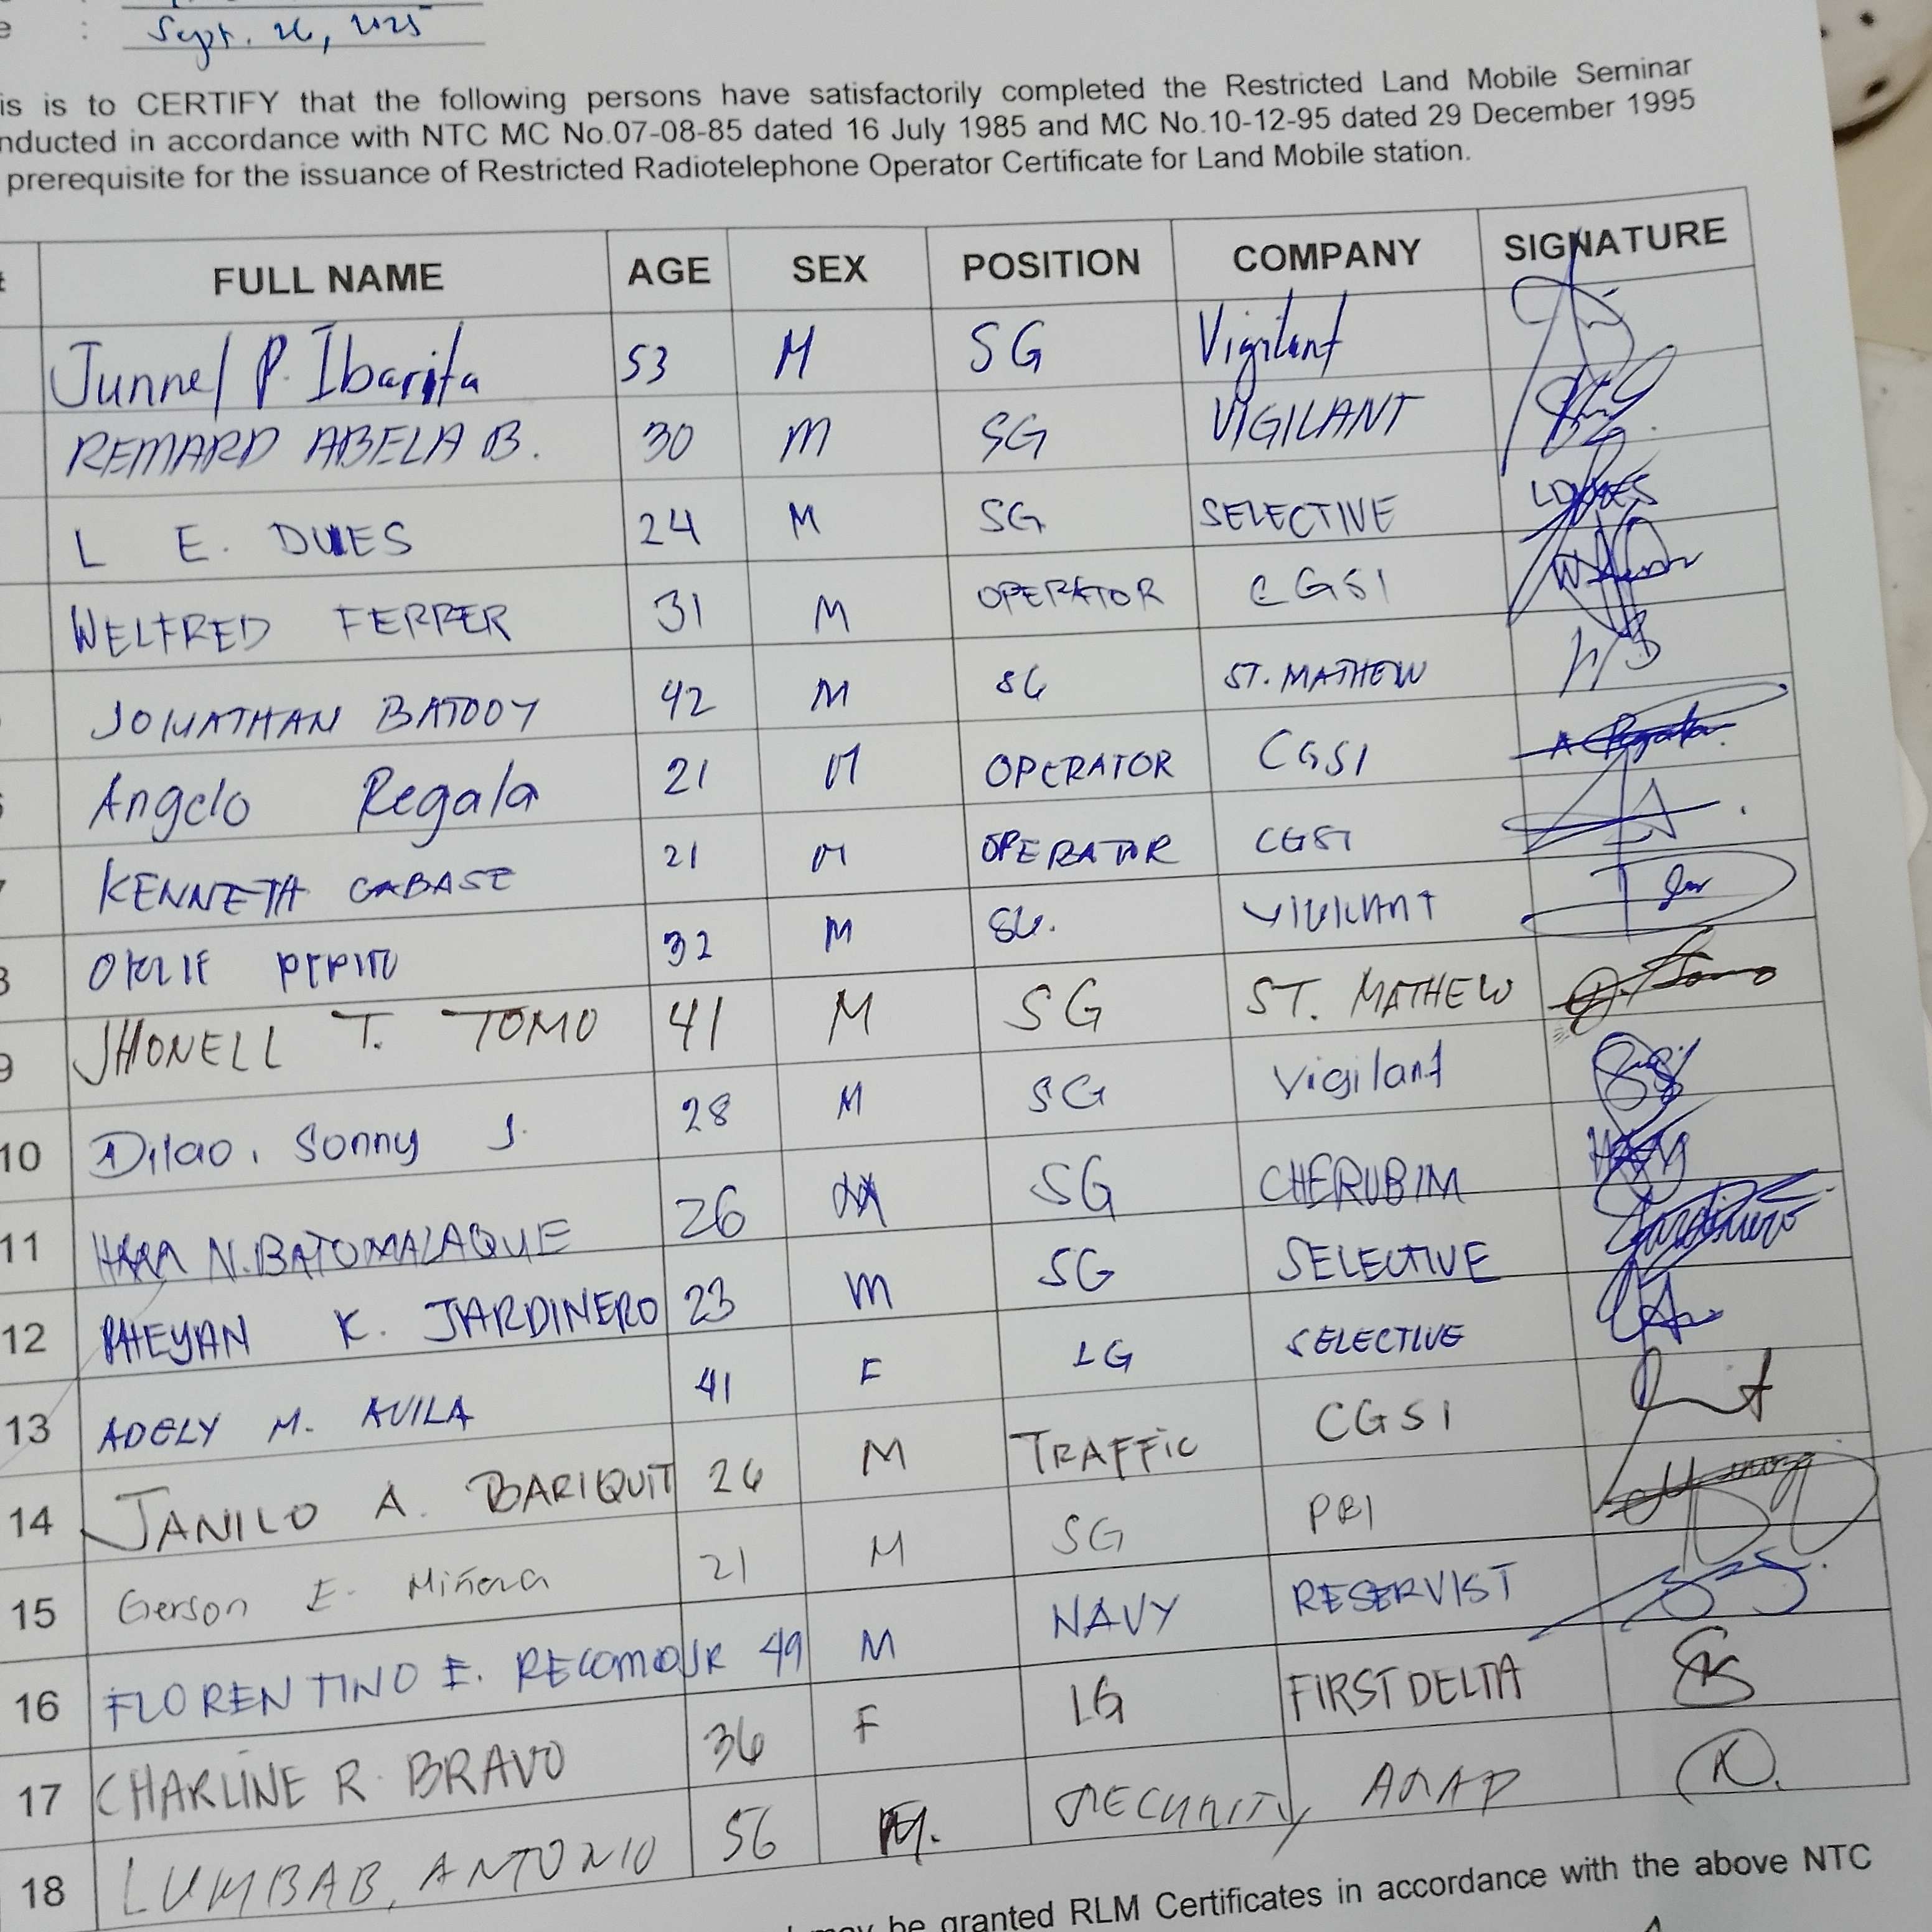 e :
Sept. 26, 2025
is is to CERTIFY that the following persons have satisfactorily completed the Restricted Land Mobile Seminar
nducted in accordance with NTC MC No.07-08-85 dated 16 July 1985 and MC No.10-12-95 dated 29 December 1995
prerequisite for the issuance of Restricted Radiotelephone Operator Certificate for Land Mobile station.
FULL NAME AGE SEX POSITION COMPANY SIGNATURE
Junnel P. Ibarita 53 M SG Vigilant
REMARD ABELA B. 30 M SG VIGILANT
L E. 24 M SG SELECTIVE
WELFRED FERRER 31 M OPERATOR CGSI
JONATHAN BATOOY 42 M SG ST. MATHEW
Angelo Regala 21 M OPERATOR CGSI A Regala
7 KENNETH CABASE 21 M OPERATOR CGSI
8 PEPITO 32 M SG. VIGILANT
9 JHONELL T. TOMO 41 M SG ST. MATHEW J. Tomo
10 Dilao, Sonny J. 28 M SG Vigilant
11 N. BATOMALAQUE 26 M SG CHERUBIM
12 RHEYAN K. JARDINERO 23 M SG SELECTIVE Jardinero
13 ADELY M. AVILA 41 F LG SELECTIVE
14 JANILO A. BARIQUIT 26 M TRAFFIC CGSI
15 Gerson E. Miñoza 21 M SG PBI
16 FLORENTINO E. RECOMO JR 49 M NAVY RESERVIST
17 CHARLINE R. BRAVO 36 F LG FIRST DELTA
18 LUMBAB, ANTONIO 56 M. SECURITY ASAP
may be granted RLM Certificates in accordance with the above NTC